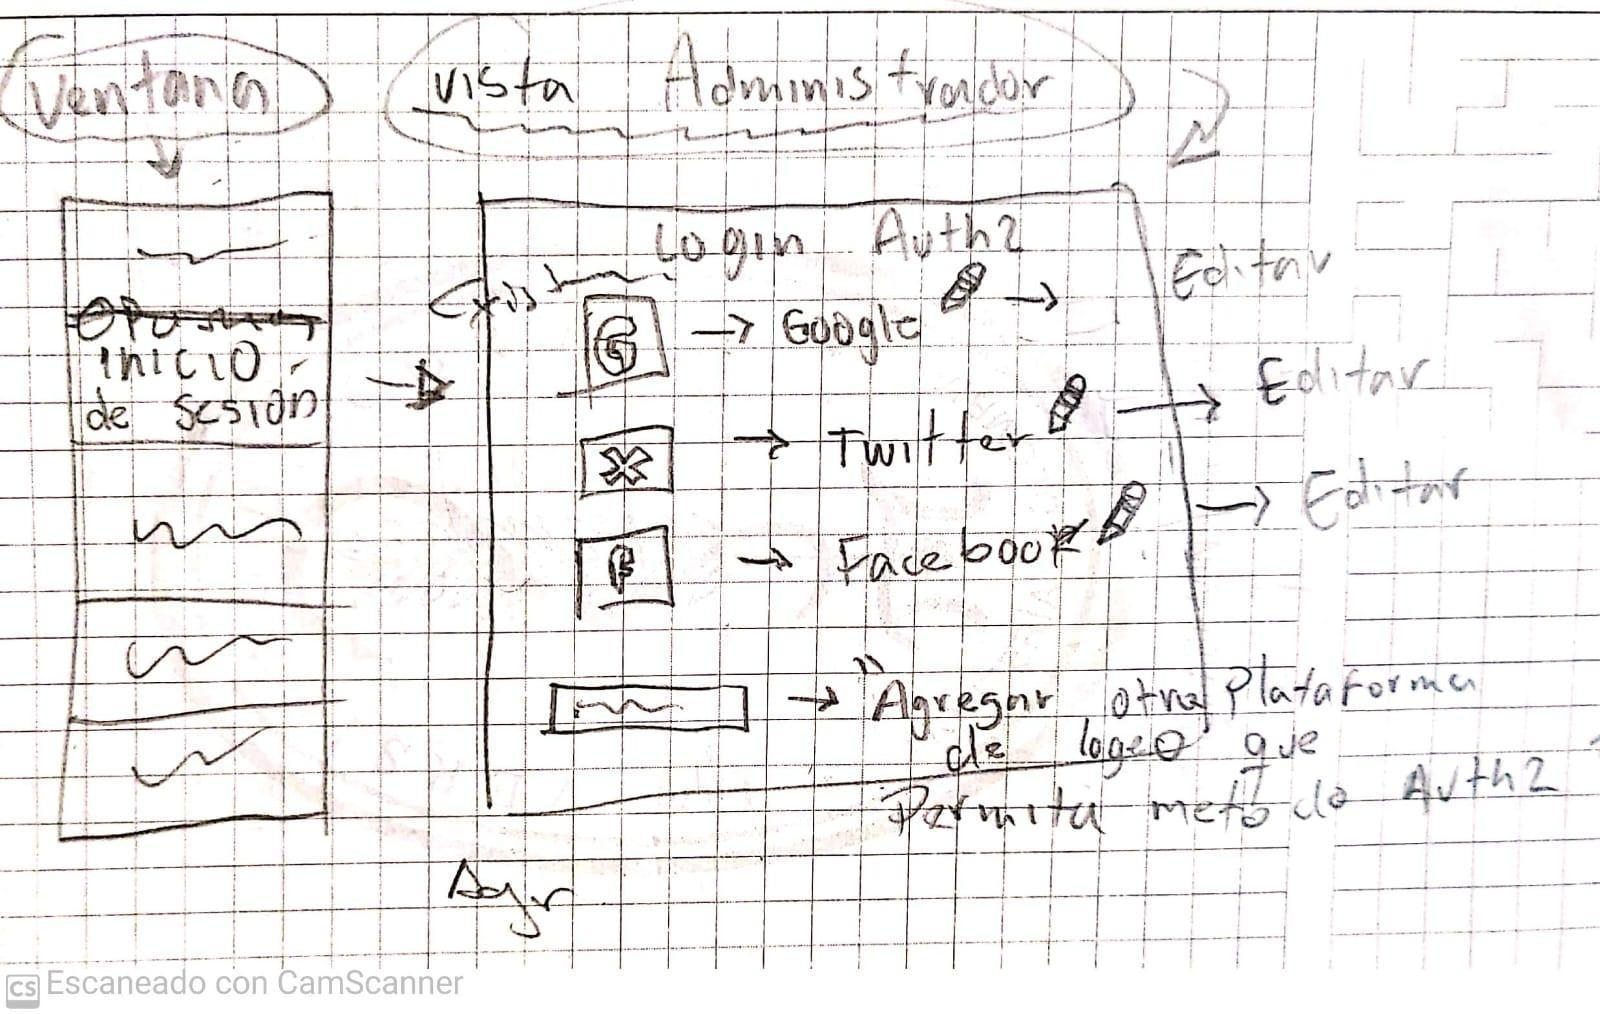 Ventana
vista Administrador
inicio
de sesion
Login Auth2
G → Google → Editar
X → Twitter → Editar
F → Facebook → Editar
→ "Agregar otra Plataforma
de logeo que
Permita metodo Auth2
Agr
CS Escaneado con CamScanner